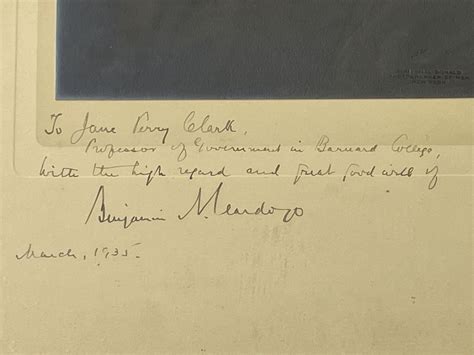 To Jane Perry Clark,
Professor of Government in Barnard College,
with the high regard and great good will of
Benjamin N. Cardozo
March, 1935.